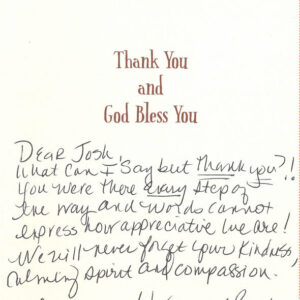 Thank You
and
God Bless You
Dear Josh,
What can I say but thank you?!
You were there every step of
the way and words cannot
express how appreciative we are!
We will never forget your kindness,
calming spirit and compassion.